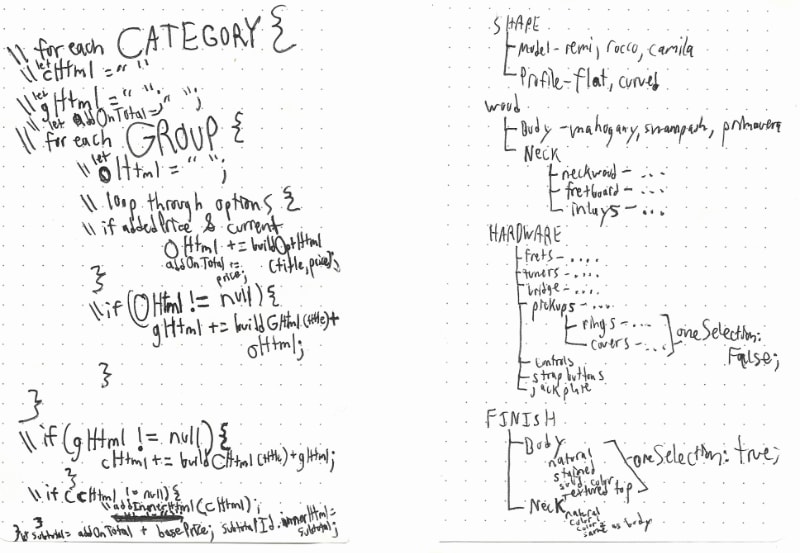 \\ for each CATEGORY {
\\ let cHtml = " "
\\ let gHtml = " ";
\\ let addOnTotal = " ";
\\ for each GROUP {
\\ let oHtml = " ";
\\ loop through options {
\\ if addedPrice & current
oHtml += buildOptHtml
(title, price);
addOnTotal +=
price;
}
\\ if (oHtml != null) {
gHtml += buildGHtml (title) +
oHtml;
}
}
\\ if (gHtml != null) {
cHtml += buildCHtml (title) + gHtml;
}
\\ if (cHtml != null) {
\\ addInnerHtml (cHtml);
}
subtotal = addOnTotal + basePrice; subtotalId.innerHtml =
subtotal;
SHAPE
Model - remi, rocco, camila
Profile - flat, curved
WOOD
Body - mahogany, swampash, primavera
NECK
neckwood - ...
fretboard - ...
inlays - ...
HARDWARE
frets - ....
tuners - ....
bridge - ....
pickups - ...
rings - ...
covers - ...
oneSelection:
False;
controls
strap buttons
jack plate
FINISH
Body
natural
stained
solid color
textured top
oneSelection: true;
Neck
natural
color
same as body